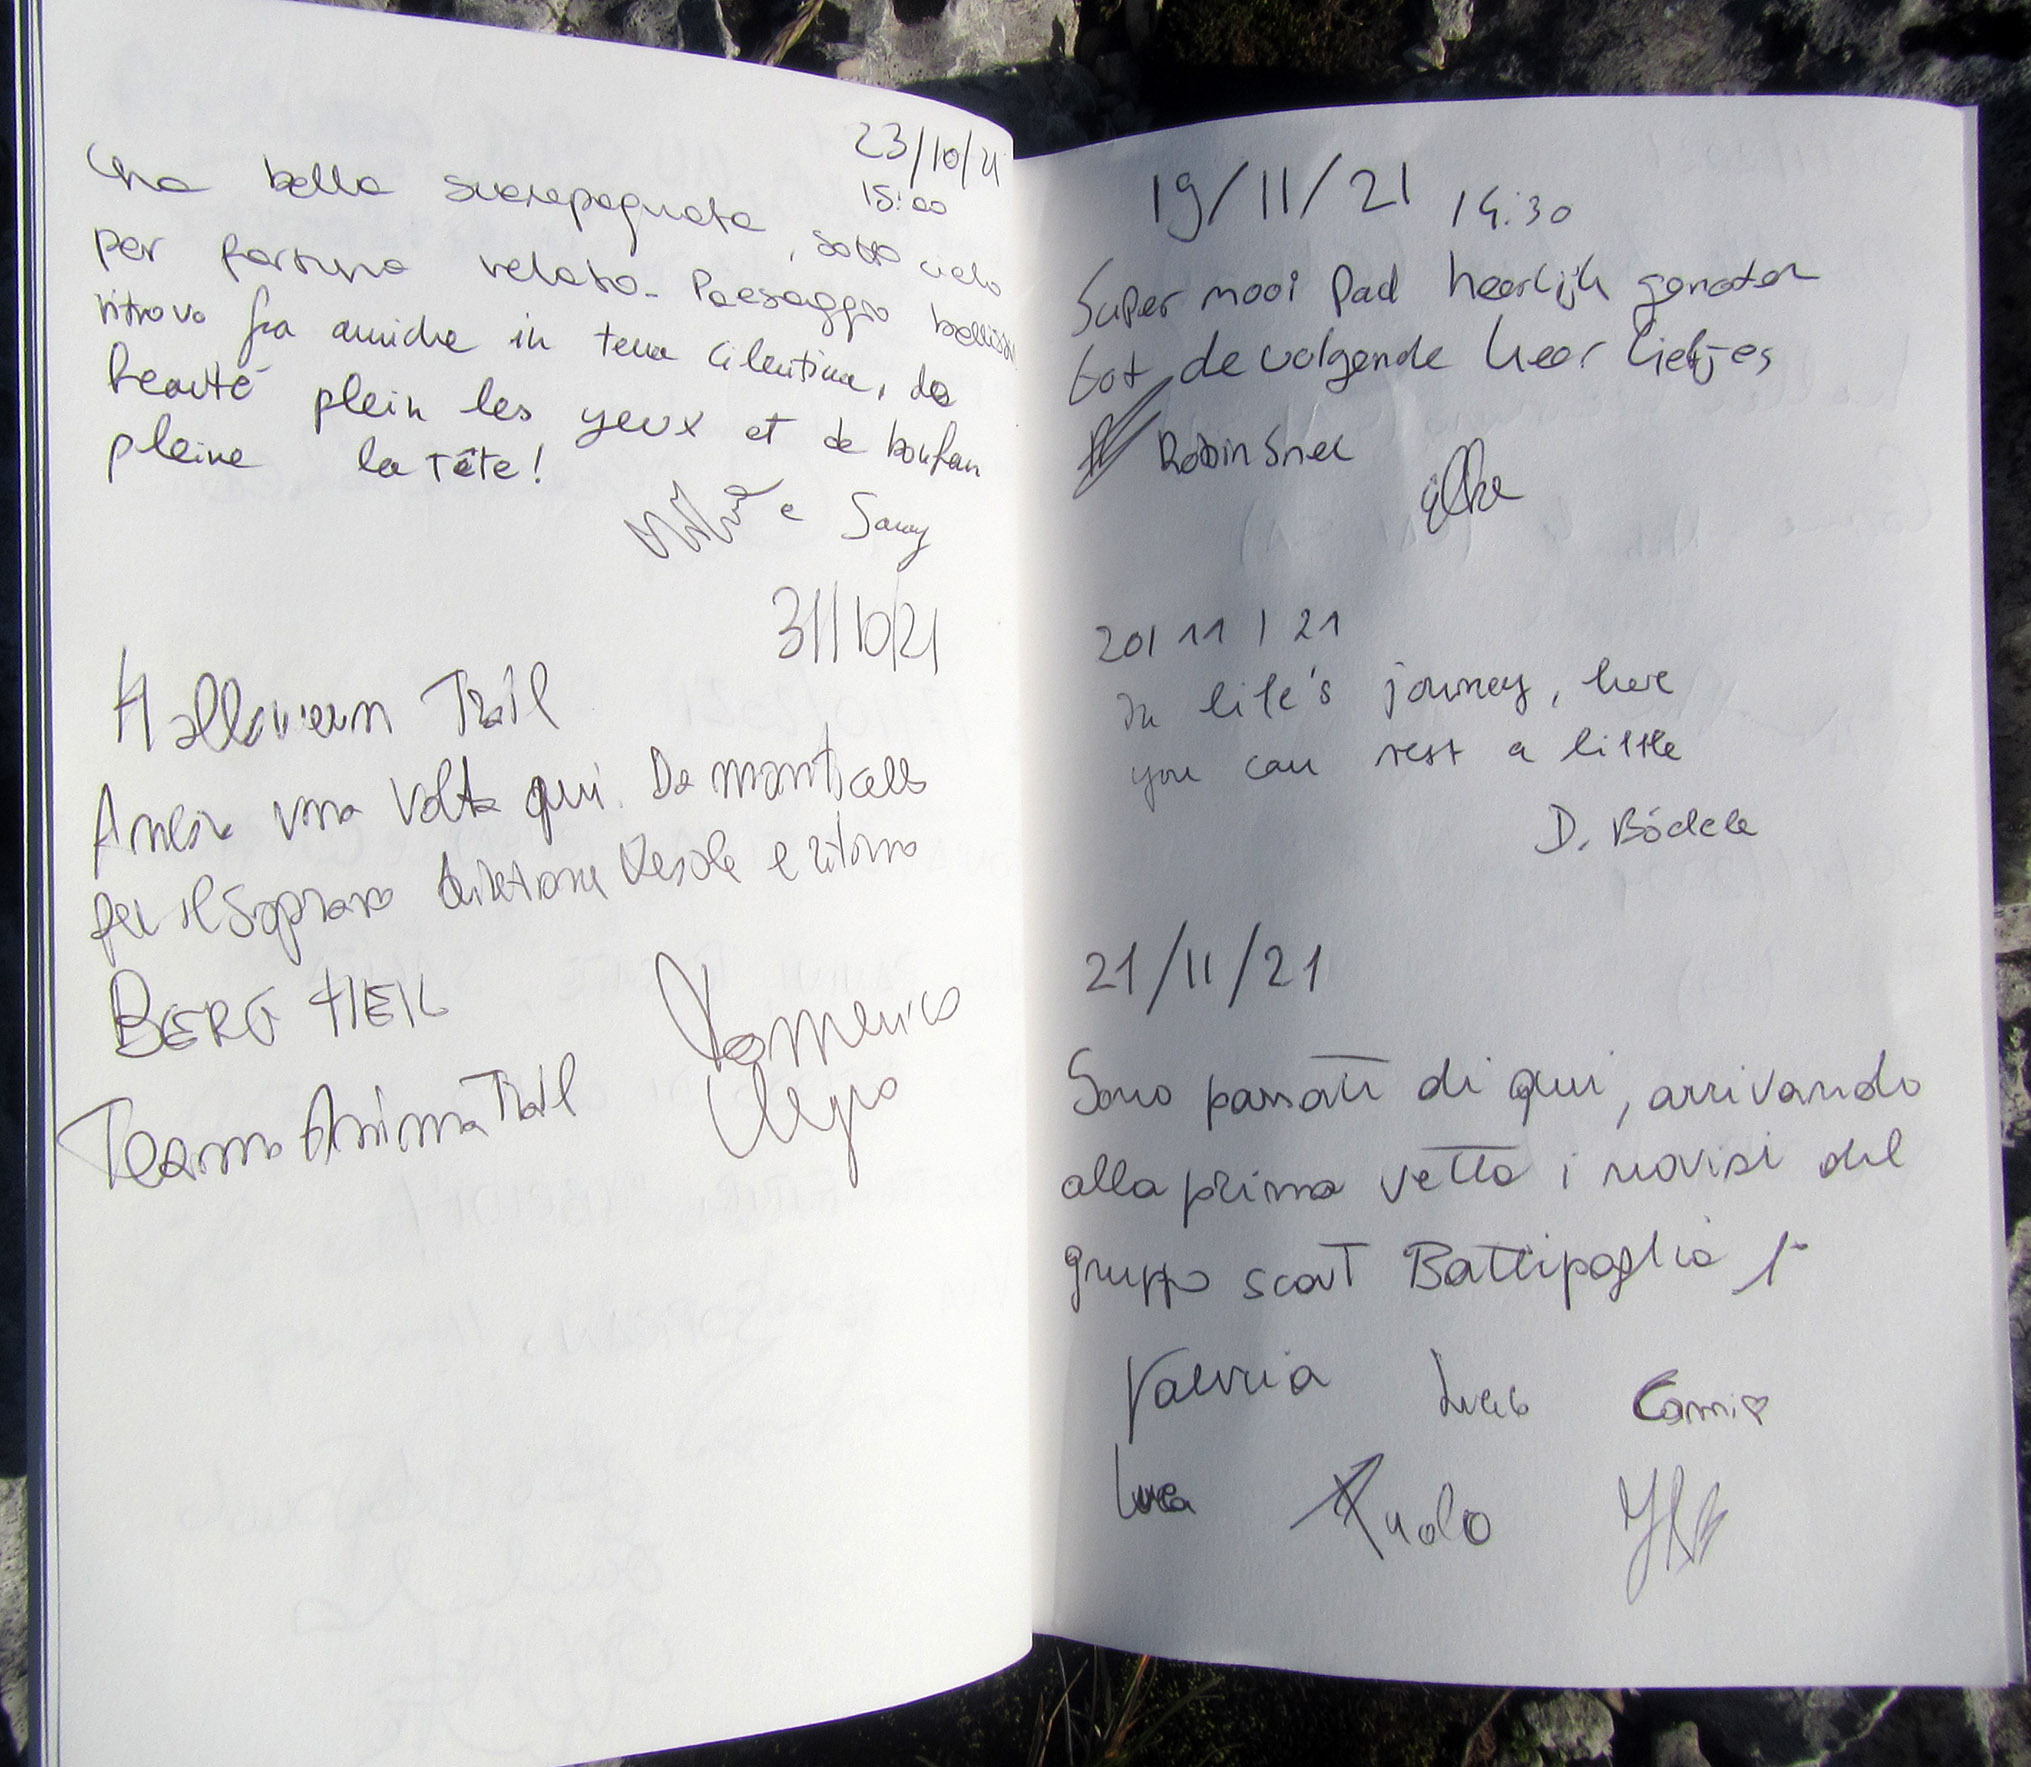 23/10/21
15:00
Una bella scarpagnata, sotto cielo
per fortuna velato. Paesaggio bellissi
ritrovo fra amiche in terra cilentina, de
beauté plein les yeux et de
pleine la tête!
e Samy
31/10/21
Halloween Trail
Ancora una volta qui. Da monticello
per il Soprano direzione Vesole e ritorno
BERG HEIL
Domenico
Team Anima Trail
19/11/21 14:30
Super mooi Pad heerlijk genoten
tot de volgende keer liefjes
Robin Snel
20/11/21
In life's journey, here
you can rest a little
D. Bödele
21/11/21
Sono passati di qui, arrivando
alla prima vetta i novizi del
gruppo scout Battipaglia 1°
Valeria Cami♡
Luca